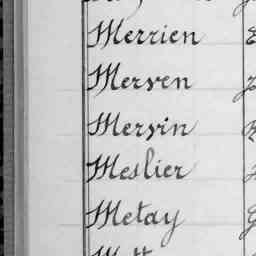 Merrien
Merven
Mervin
Meslier
Metay